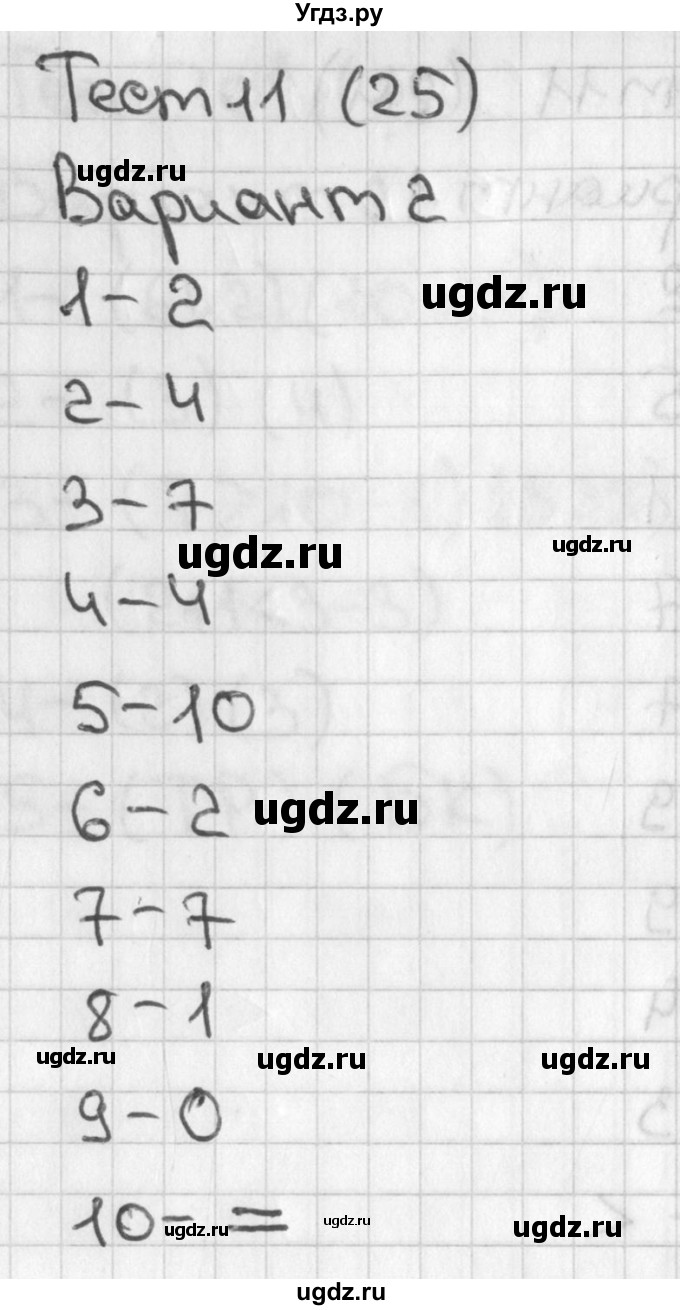 Угдз.ру
Тест 11 (25)
ugdz.ru
Вариант 2
1 - 2
ugdz.ru
2 - 4
3 - 7
ugdz.ru
ugdz.ru
4 - 4
5 - 10
6 - 2
ugdz.ru
7 - 7
8 - 1
ugdz.ru
ugdz.ru
ugdz.ru
9 - 0
10 - =
ugdz.ru
ugdz.ru
ugdz.ru
ugdz.ru